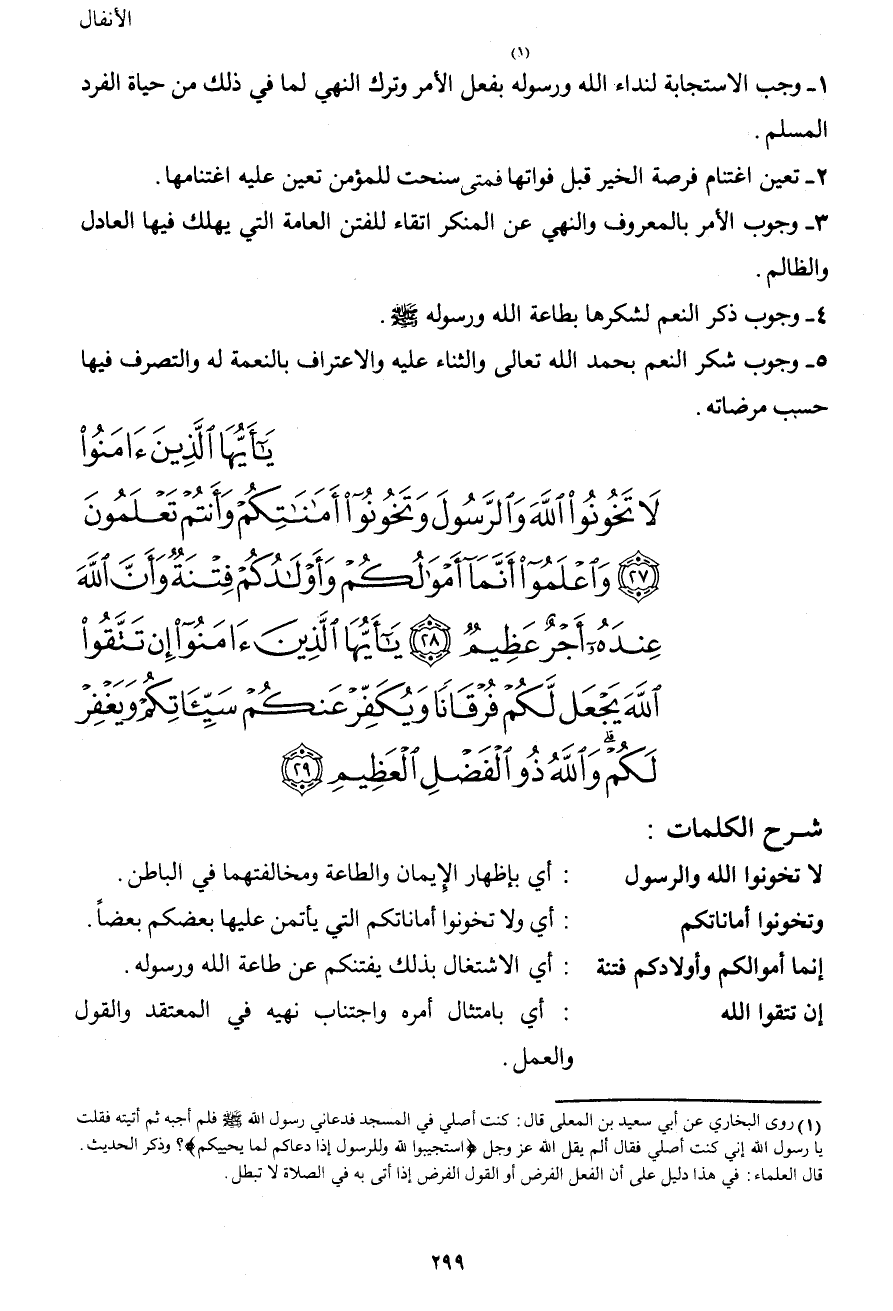 الأنفال
(١)
١ـ وجب الاستجابة لنداء الله ورسوله بفعل الأمر وترك النهي لما في ذلك من حياة الفرد
المسلم .
٢ـ تعين اغتنام فرصة الخير قبل فواتها فمتى سنحت للمؤمن تعين عليه اغتنامها .
٣ـ وجوب الأمر بالمعروف والنهي عن المنكر اتقاء للفتن العامة التي يهلك فيها العادل
والظالم .
٤ـ وجوب ذكر النعم لشكرها بطاعة الله ورسوله ﷺ .
٥ـ وجوب شكر النعم بحمد الله تعالى والثناء عليه والاعتراف بالنعمة له والتصرف فيها
حسب مرضاته .
يَٰٓأَيُّهَا ٱلَّذِينَ ءَامَنُوا۟
لَا تَخُونُوا۟ ٱللَّهَ وَٱلرَّسُولَ وَتَخُونُوٓا۟ أَمَٰنَٰتِكُمْ وَأَنتُمْ تَعْلَمُونَ
٢٧ وَٱعْلَمُوٓا۟ أَنَّمَآ أَمْوَٰلُكُمْ وَأَوْلَٰدُكُمْ فِتْنَةٌ وَأَنَّ ٱللَّهَ
عِندَهُۥٓ أَجْرٌ عَظِيمٌ ٢٨ يَٰٓأَيُّهَا ٱلَّذِينَ ءَامَنُوٓا۟ إِن تَتَّقُوا۟
ٱللَّهَ يَجْعَل لَّكُمْ فُرْقَانًا وَيُكَفِّرْ عَنكُمْ سَيِّـَٔاتِكُمْ وَيَغْفِرْ
لَكُمْ ۗ وَٱللَّهُ ذُو ٱلْفَضْلِ ٱلْعَظِيمِ ٢٩
شرح الكلمات :
لا تخونوا الله والرسول : أي بإظهار الإيمان والطاعة ومخالفتهما في الباطن .
وتخونوا أماناتكم : أي ولا تخونوا أماناتكم التي يأتمن عليها بعضكم بعضاً .
إنما أموالكم وأولادكم فتنة : أي الاشتغال بذلك يفتنكم عن طاعة الله ورسوله .
إن تتقوا الله : أي بامتثال أمره واجتناب نهيه في المعتقد والقول
والعمل .
(١) روى البخاري عن أبي سعيد بن المعلى قال : كنت أصلي في المسجد فدعاني رسول الله ﷺ فلم أجبه ثم أتيته فقلت
يا رسول الله إني كنت أصلي فقال ألم يقل الله عز وجل ﴿استجيبوا لله وللرسول إذا دعاكم لما يحييكم﴾؟ وذكر الحديث .
قال العلماء : في هذا دليل على أن الفعل الفرض أو القول الفرض إذا أتى به في الصلاة لا تبطل .
٢٩٩